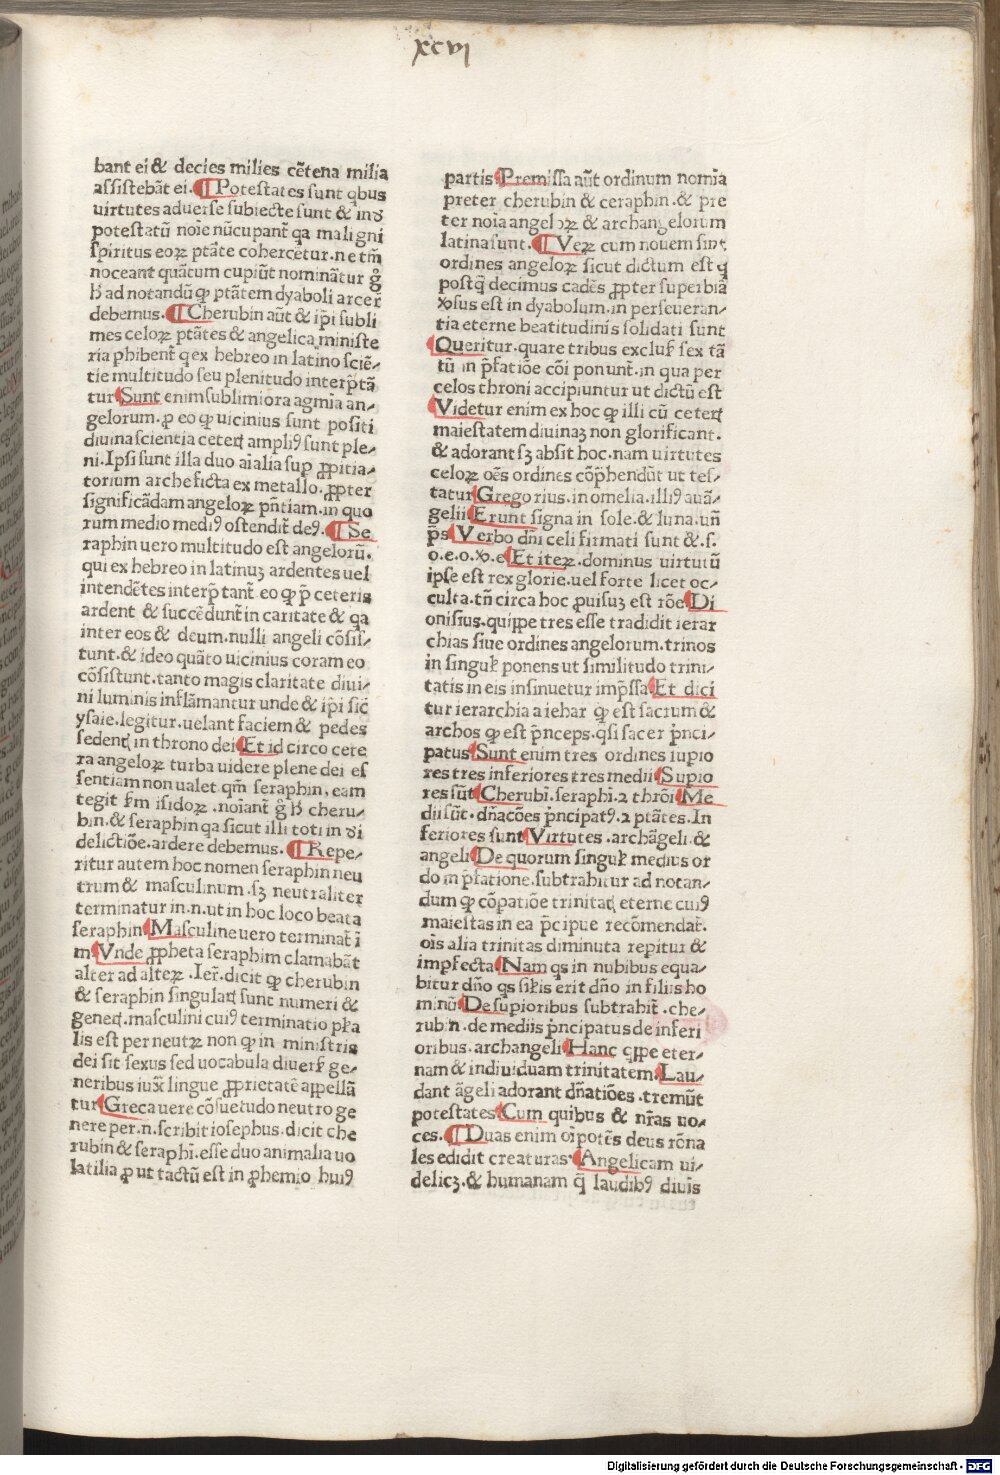 xcvi
bant ei & decies milies cētena milia
assistebāt ei. ¶ Potestates sunt qbus
uirtutes aduerse subiecte sunt & inď
potestatū noīe nūcupant̄ qa maligni
spiritus eoꝝ ptāte cohercētur. ne tm̄
noceant quātum cupiūt nominātur g̊
ƀ ad notandū ꝙ ptātem dyaboli arcer̄
debemus. ¶ Cherubin aūt & ip̄i subli
mes celoꝝ ptātes & angelica ministe
ria phibent̄ qex hebreo in latino sciē⸗
tie multitudo seu plenitudo interp̄tā
tur Sunt enim sublimiora agmīa an⸗
gelorum. ꝑ eo ꝙ uicinius sunt positi
diuina scientia ceteꝶ ampliꝰ sunt ple⸗
ni. Ipsi sunt illa duo aīalia sup ꝓpitia⸗
torium arche ficta ex metallo. ꝓpter
significādam angeloꝝ pn̄tiam. in quo
rum medio mediꝰ ostendit̄ deꝰ. ¶ Se
raphin uero multitudo est angelorū.
qui ex hebreo in latinuȝ ardentes uel
intendētes interp̄tant̄ eo ꝙ p̄ ceteris
ardent & succēdunt̄ in caritate & qa
inter eos & deum. nulli angeli cōsis⸗
tunt. & ideo quāto uicinius coram eo
cōsistunt. tanto magis claritate diui⸗
ni luminis inflāmantur unde & ip̄i sic̄
ysaie. legitur. uelant faciem & pedes
sedenꝶ in throno dei Et id circo cete
ra angeloꝝ turba uidere plene dei es
sentiam non ualet qm̄ seraphin, eam
tegit s̄m isidoꝝ. noīant̄ g̊ ƀ cheru⸗
bin. & seraphin qa sicut illi toti in di
delictiōe. ardere debemus. ¶ Repe⸗
ritur autem hoc nomen seraphin neu
trum & masculinum. sȝ neutraliter
terminatur in. n. ut in hoc loco beata
seraphin Masculine uero terminat̄ ī
m Vnde ꝓpheta seraphim clamabāt
alter ad alteꝝ. Ier̄. dicit ꝙ cherubin
& seraphin singularꝶ sunt numeri &
generꝶ. masculini cuiꝰ terminatio pła
lis est per neutꝝ non ꝙ in ministris
dei sit sexus sed uocabula diuerſ ge⸗
neribus iux̄ lingue ꝓprietatē appellā
tur Greca uere cōsuetudo neutro ge
nere per. n. scribit iosephus. dicit che
rubin & seraphi. esse duo animalia uo
latilia ꝓ ut tactū est in ꝓhemio huiꝰ
partis Premissa aūt ordinum nomīa
preter cherubin & ceraphin. & pre
ter noīa angeloꝝ & archangelorum
latina sunt. ¶ Veꝝ cum nouem sint
ordines angeloꝝ sicut dictum est q̄
postq̄ decimus cadēs ꝓpter superbiā
x̄osus est in dyabolum. in perseueran⸗
tia eterne beatitudinis solidati sunt
Queritur. quare tribus excluſ sex tā
tū in p̄fatiōe cōi ponunt. in qua per
celos throni accipiuntur ut dictū est
Videtur enim ex hoc ꝙ illi cū ceterꝶ
maiestatem diuinaȝ non glorificant.
& adorant sȝ absit hoc. nam uirtutes
celoꝝ oēs ordines cōp̄hendūt ut tes⸗
tatur Gregorius. in omelia. illiꝰ auā⸗
gelii. Erunt signa in sole. & luna. un̄
p̄s Verbo dn̄i celi firmati sunt &. s.
o. e. o. x̄o. e Et iteꝝ. dominus uirtutū
ipse est rex glorie. uel forte licet oc⸗
culta. tn̄ circa hoc ꝓuisuȝ est rōe Di
onisius. quippe tres esse tradidit ierar
chias siue ordines angelorum. trinos
in singuł ponens ut similitudo trini⸗
tatis in eis insinuetur imp̄ssa. Et dici
tur ierarchia a iehar ꝙ est sacrum &
archos ꝙ est p̄nceps. qsi sacer p̄nci⸗
patus Sunt enim tres ordines iupio
res tres inferiores tres medii Supio
res sūt Cherubī. seraphī. 2 thrōi Me
dii sūt. dn̄acōes p̄ncipatꝰ. 2 ptātes. In
feriores sunt Virtutes. archāgeli. &
angeli De quorum singuł medius or
do in p̄fatione. subtrahitur ad notan⸗
dum ꝙ cōpatiōe trinitaꝶ eterne cuiꝰ
maiestas in ea p̄cipue recōmendat̄.
oīs alia trinitas diminuta repitur &
impfecta Nam qs in nubibus equa⸗
bitur dn̄o qs siłis erit dn̄o in filiis ho
minū De supioribus subtrahit̄. che⸗
rubin. de mediis p̄ncipatus de inferi
oribus. archangeli Hanc qppe eter⸗
nam & indiuiduam trinitatem. Lau⸗
dant āgeli adorant dn̄atiōes. tremūt
potestates Cum quibus & nr̄as uo⸗
ces. ¶ Duas enim oīpotēs deus rōna
les edidit creaturas. Angelicam ui⸗
delicȝ. & humanam q̄ laudibꝰ diuīs
Digitalisierung gefördert durch die Deutsche Forschungsgemeinschaft - DFG